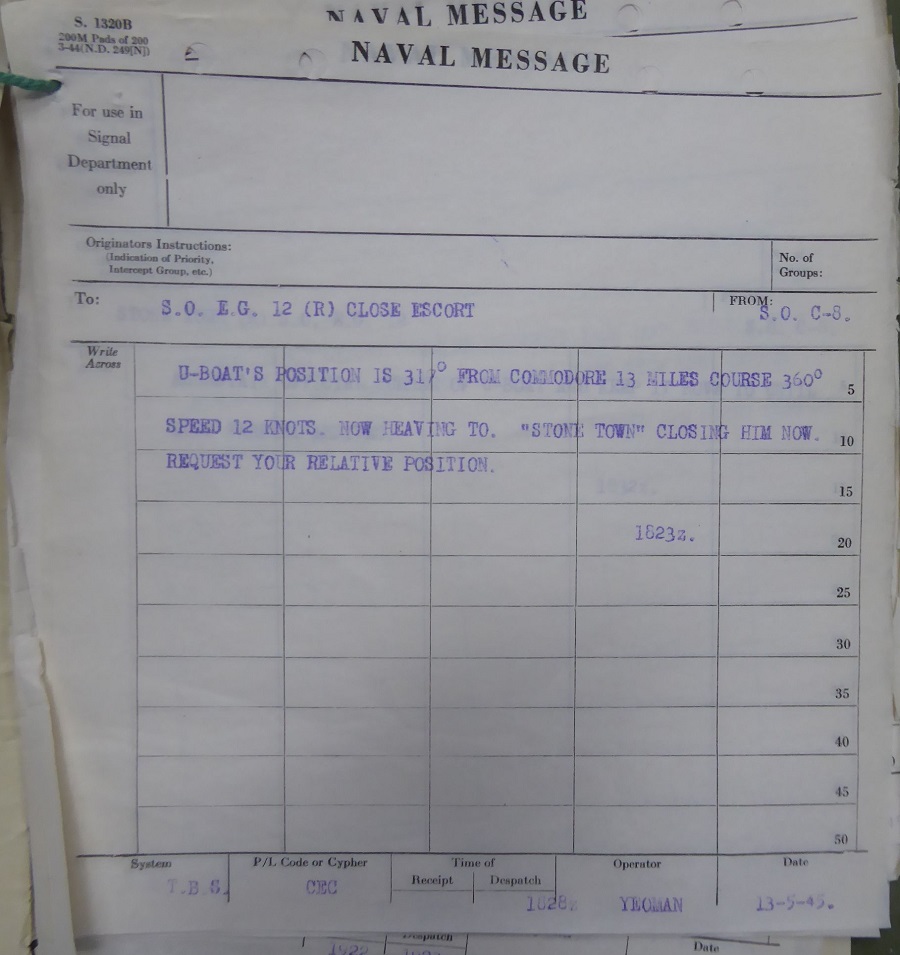 NAVAL MESSAGE
S. 1320B
200M Pads of 200
3-44(N.D. 249[N])
NAVAL MESSAGE
For use in
Signal
Department
only
Originators Instructions:
(Indication of Priority,
Intercept Group, etc.)
No. of
Groups:
To: S.O. E.G. 12 (R) CLOSE ESCORT
FROM: S.O. C-8.
Write
Across
U-BOAT'S POSITION IS 317° FROM COMMODORE 13 MILES COURSE 360° 5
SPEED 12 KNOTS. NOW HEAVING TO. "STONE TOWN" CLOSING HIM NOW. 10
REQUEST YOUR RELATIVE POSITION.
15
1823z.
20
25
30
35
40
45
50
System P/L Code or Cypher Time of Operator Date
Receipt Despatch
T.B.S. CEC 1828z YEOMAN 13-5-45.
Despatch
Date